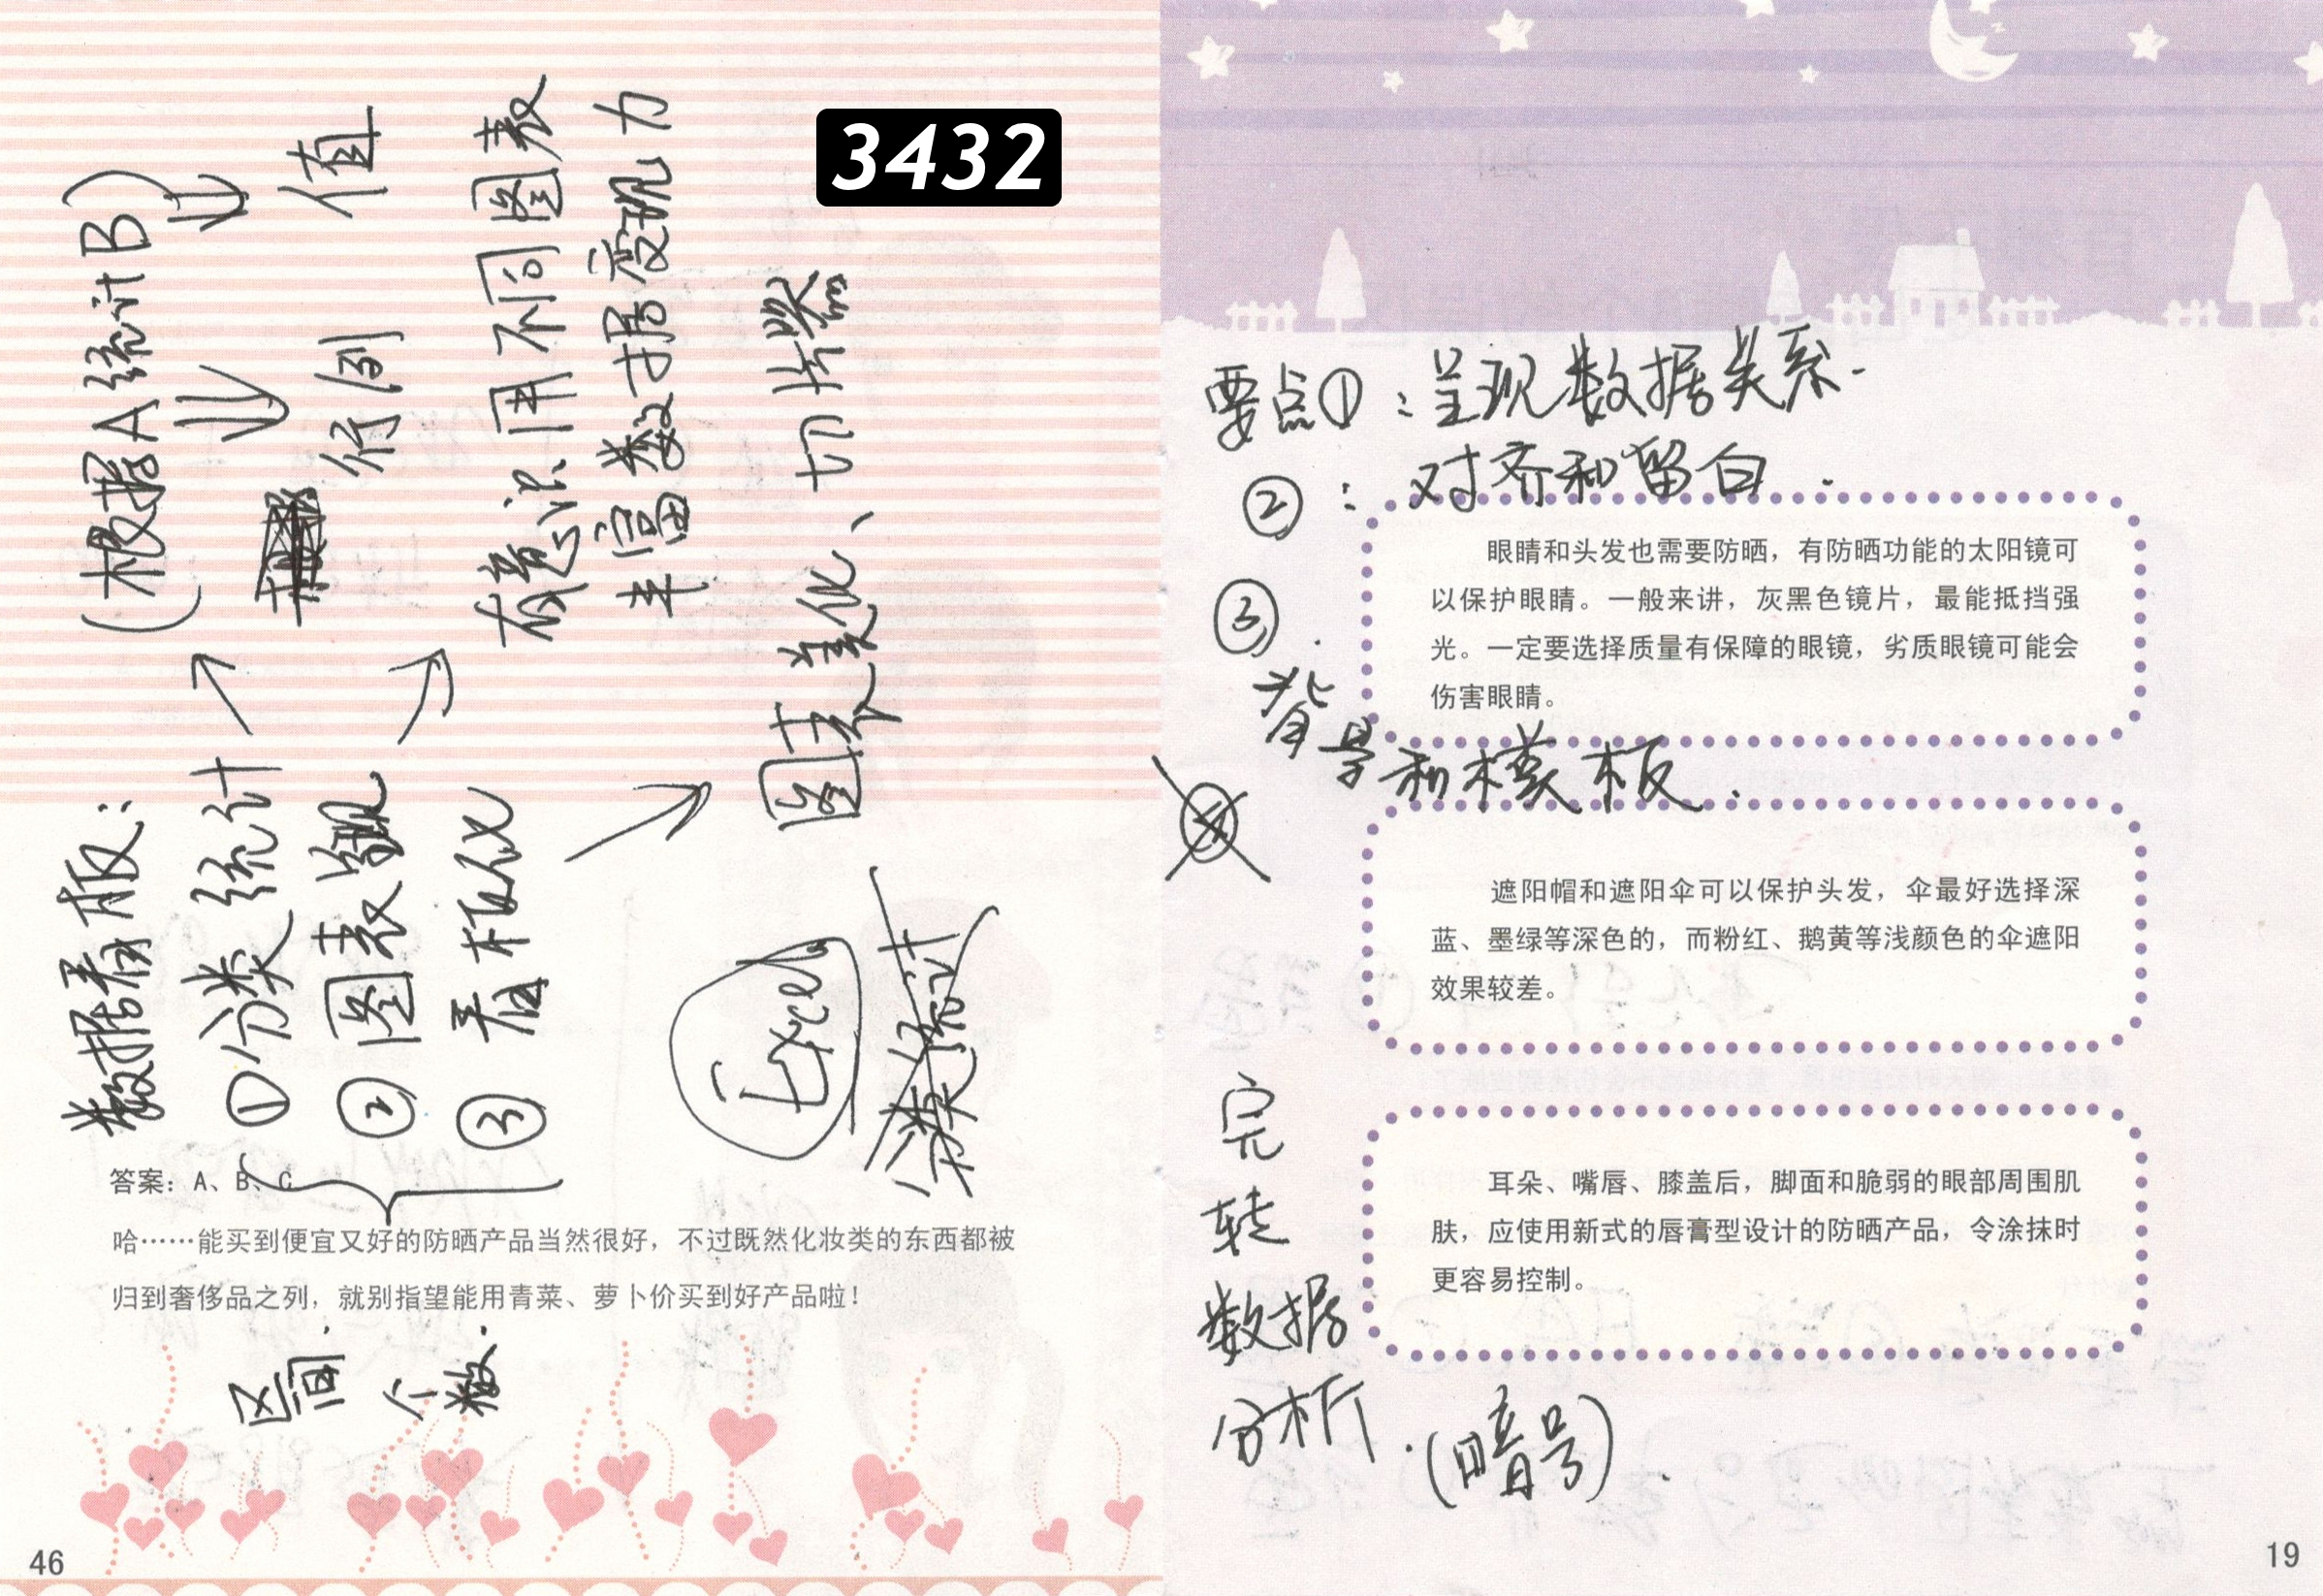 3432
数据看板：
①分类统计
(根据A统计B)
行列
值
②图表
有意识用不同图表
丰富数据变现力
③看板仪
图表美化、切片器
Excel
分类统计
区间.
个数.
答案：A、B、C
哈……能买到便宜又好的防晒产品当然很好，不过既然化妆类的东西都被
归到奢侈品之列，就别指望能用青菜、萝卜价买到好产品啦！
46
要点①：呈现数据关系.
②：对齐和留白.
③.
背景和模板.
眼睛和头发也需要防晒，有防晒功能的太阳镜可
以保护眼睛。一般来讲，灰黑色镜片，最能抵挡强
光。一定要选择质量有保障的眼镜，劣质眼镜可能会
伤害眼睛。
遮阳帽和遮阳伞可以保护头发，伞最好选择深
蓝、墨绿等深色的，而粉红、鹅黄等浅颜色的伞遮阳
效果较差。
耳朵、嘴唇、膝盖后，脚面和脆弱的眼部周围肌
肤，应使用新式的唇膏型设计的防晒产品，令涂抹时
更容易控制。
完
转
数据
分析.(暗号).
19